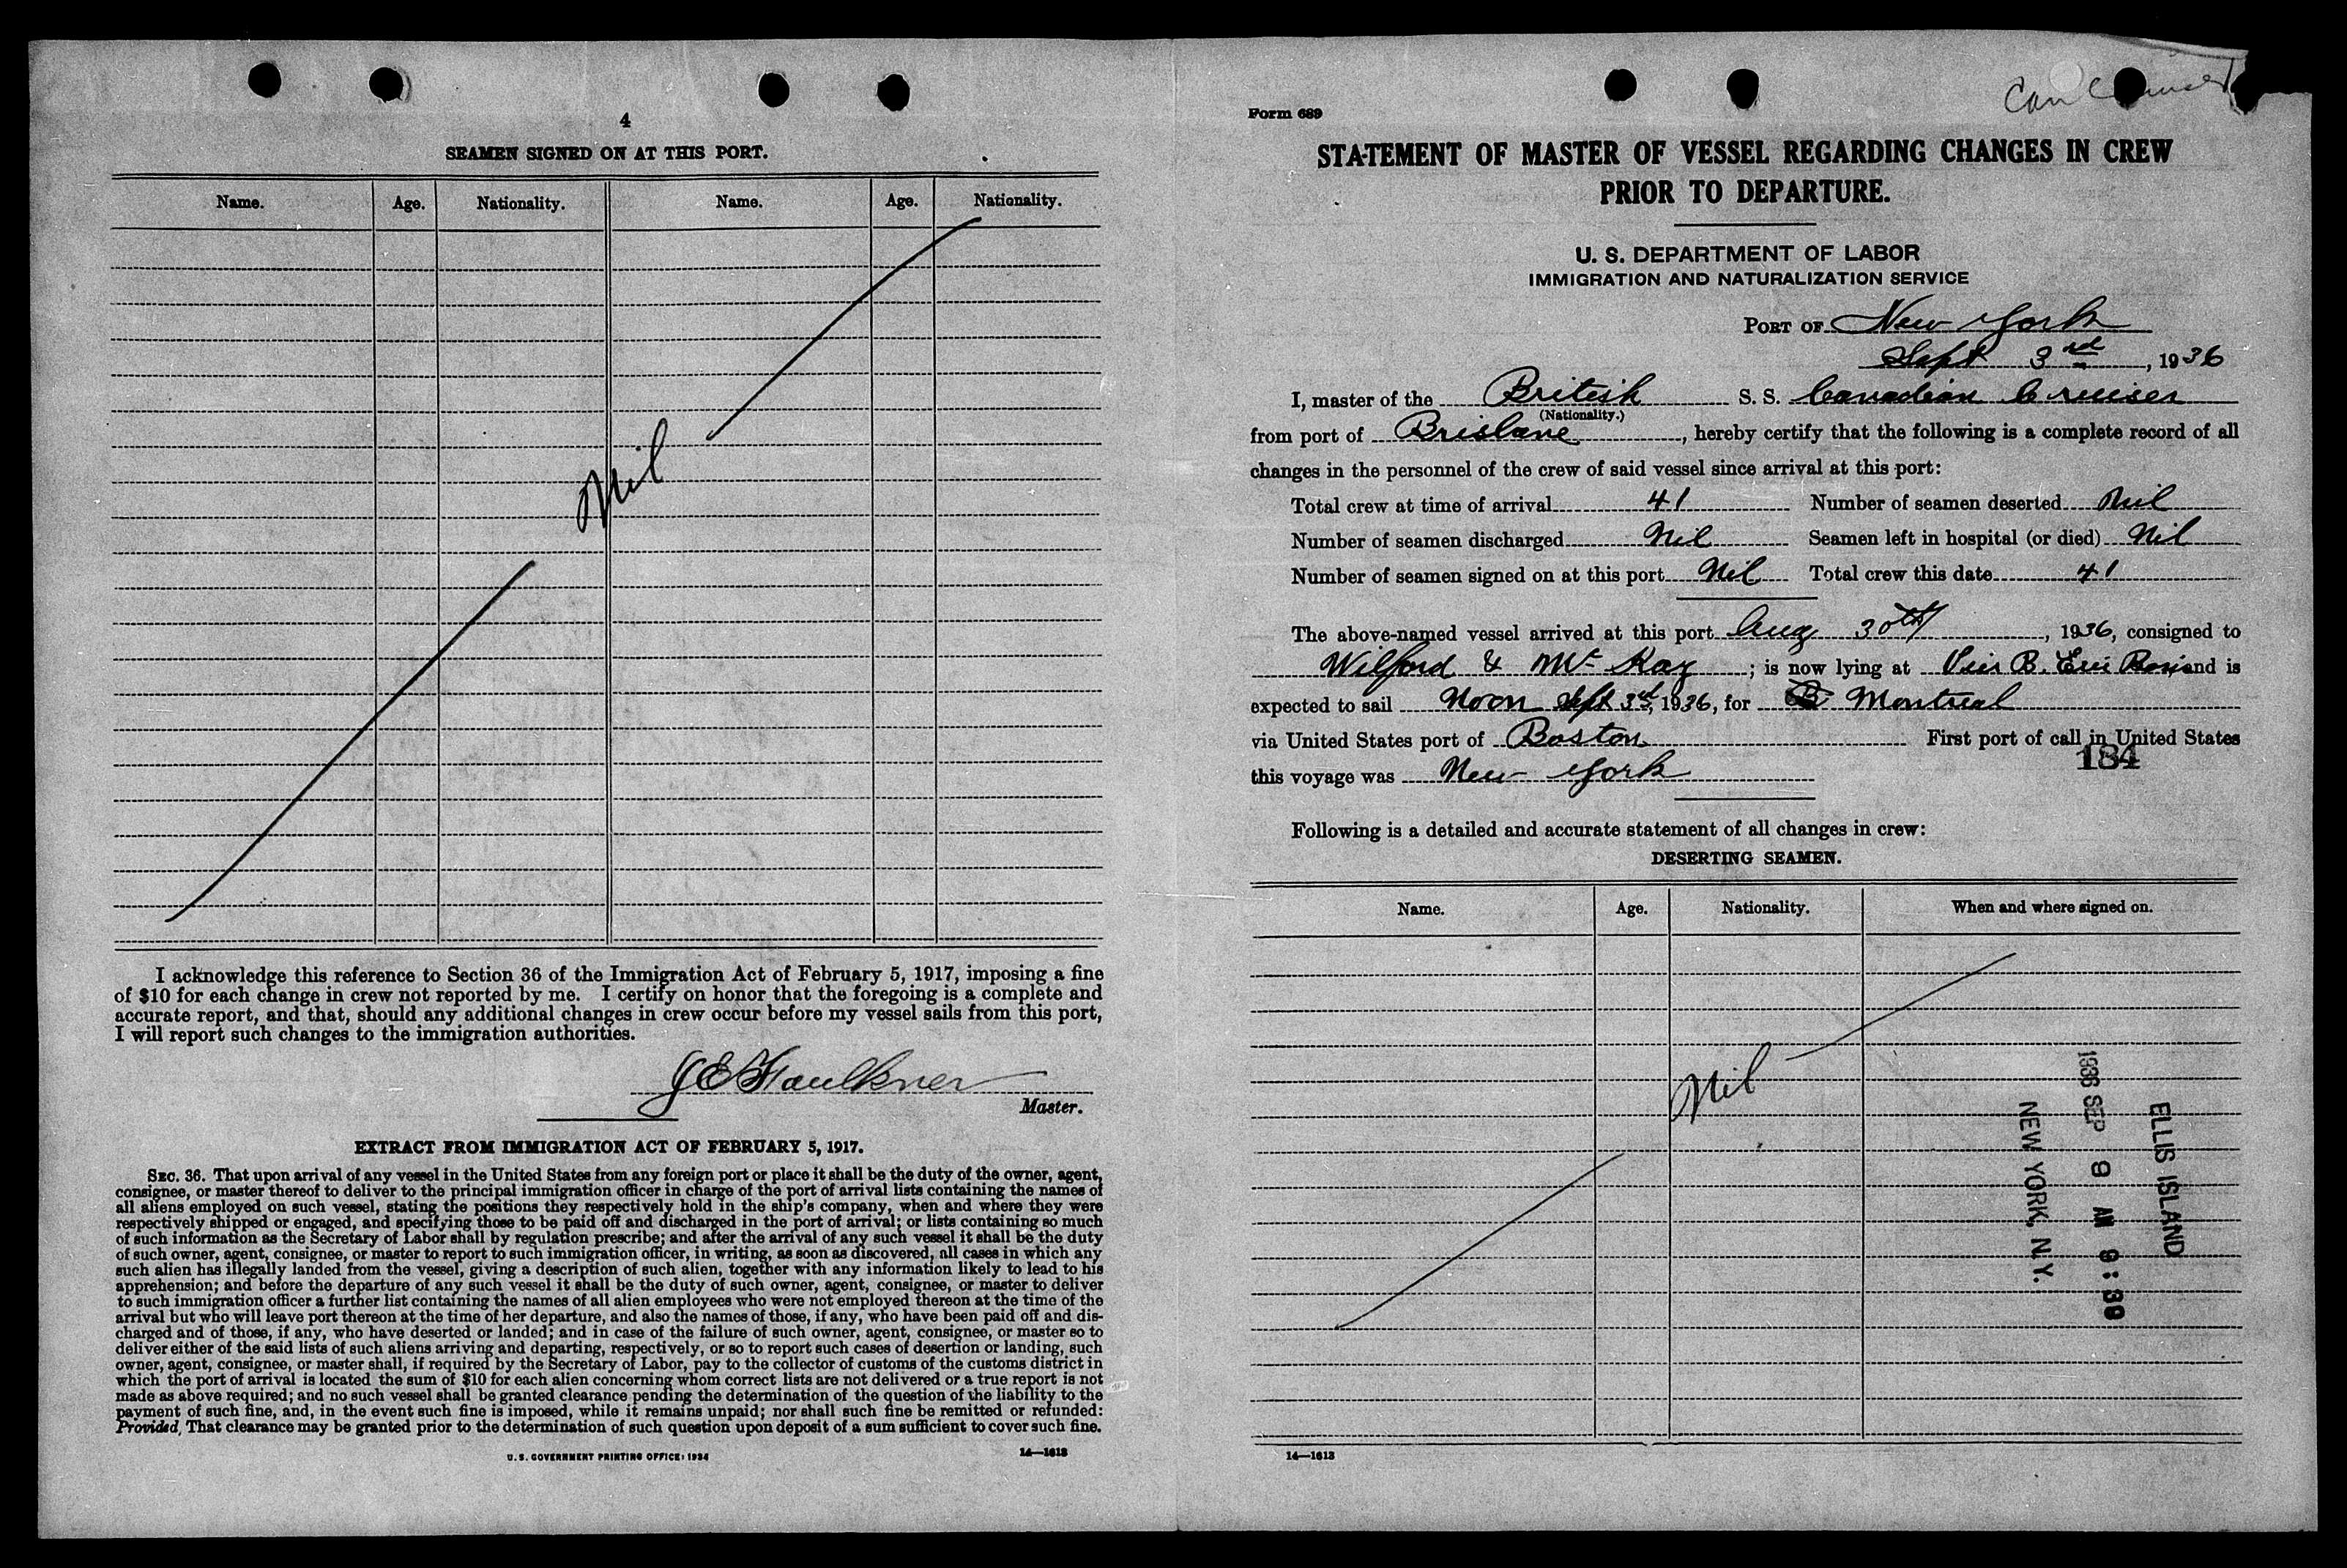 4
SEAMEN SIGNED ON AT THIS PORT.
Name. Age. Nationality. Name. Age. Nationality.
Nil
I acknowledge this reference to Section 36 of the Immigration Act of February 5, 1917, imposing a fine
of $10 for each change in crew not reported by me. I certify on honor that the foregoing is a complete and
accurate report, and that, should any additional changes in crew occur before my vessel sails from this port,
I will report such changes to the immigration authorities.
Faulkner
Master.
EXTRACT FROM IMMIGRATION ACT OF FEBRUARY 5, 1917.
SEC. 36. That upon arrival of any vessel in the United States from any foreign port or place it shall be the duty of the owner, agent,
consignee, or master thereof to deliver to the principal immigration officer in charge of the port of arrival lists containing the names of
all aliens employed on such vessel, stating the positions they respectively hold in the ship's company, when and where they were
respectively shipped or engaged, and specifying those to be paid off and discharged in the port of arrival; or lists containing so much
of such information as the Secretary of Labor shall by regulation prescribe; and after the arrival of any such vessel it shall be the duty
of such owner, agent, consignee, or master to report to such immigration officer, in writing, as soon as discovered, all cases in which any
such alien has illegally landed from the vessel, giving a description of such alien, together with any information likely to lead to his
apprehension; and before the departure of any such vessel it shall be the duty of such owner, agent, consignee, or master to deliver
to such immigration officer a further list containing the names of all alien employees who were not employed thereon at the time of the
arrival but who will leave port thereon at the time of her departure, and also the names of those, if any, who have been paid off and dis-
charged and of those, if any, who have deserted or landed; and in case of the failure of such owner, agent, consignee, or master so to
deliver either of the said lists of such aliens arriving and departing, respectively, or so to report such cases of desertion or landing, such
owner, agent, consignee, or master shall, if required by the Secretary of Labor, pay to the collector of customs of the customs district in
which the port of arrival is located the sum of $10 for each alien concerning whom correct lists are not delivered or a true report is not
made as above required; and no such vessel shall be granted clearance pending the determination of the question of the liability to the
payment of such fine, and, in the event such fine is imposed, while it remains unpaid; nor shall such fine be remitted or refunded:
Provided, That clearance may be granted prior to the determination of such question upon deposit of a sum sufficient to cover such fine.
U. S. GOVERNMENT PRINTING OFFICE: 1934 14—1613
Can
Form 689
STATEMENT OF MASTER OF VESSEL REGARDING CHANGES IN CREW
PRIOR TO DEPARTURE.
U. S. DEPARTMENT OF LABOR
IMMIGRATION AND NATURALIZATION SERVICE
PORT OF New York
Sept 3rd, 1936
I, master of the British S. S. Canadian Cruiser
(Nationality.)
from port of Brisbane, hereby certify that the following is a complete record of all
changes in the personnel of the crew of said vessel since arrival at this port:
Total crew at time of arrival 41 Number of seamen deserted Nil
Number of seamen discharged Nil Seamen left in hospital (or died) Nil
Number of seamen signed on at this port Nil Total crew this date 41
The above-named vessel arrived at this port Aug 30th, 1936, consigned to
Wilford & McKay; is now lying at Pier B. Erie Basin and is
expected to sail Noon Sept 3rd, 1936, for Montreal
via United States port of Boston First port of call in United States
184
this voyage was New York
Following is a detailed and accurate statement of all changes in crew:
DESERTING SEAMEN.
Name. Age. Nationality. When and where signed on.
Nil
ELLIS ISLAND
1936 SEP 8 AM 9:39
NEW YORK, N.Y.
14—1613